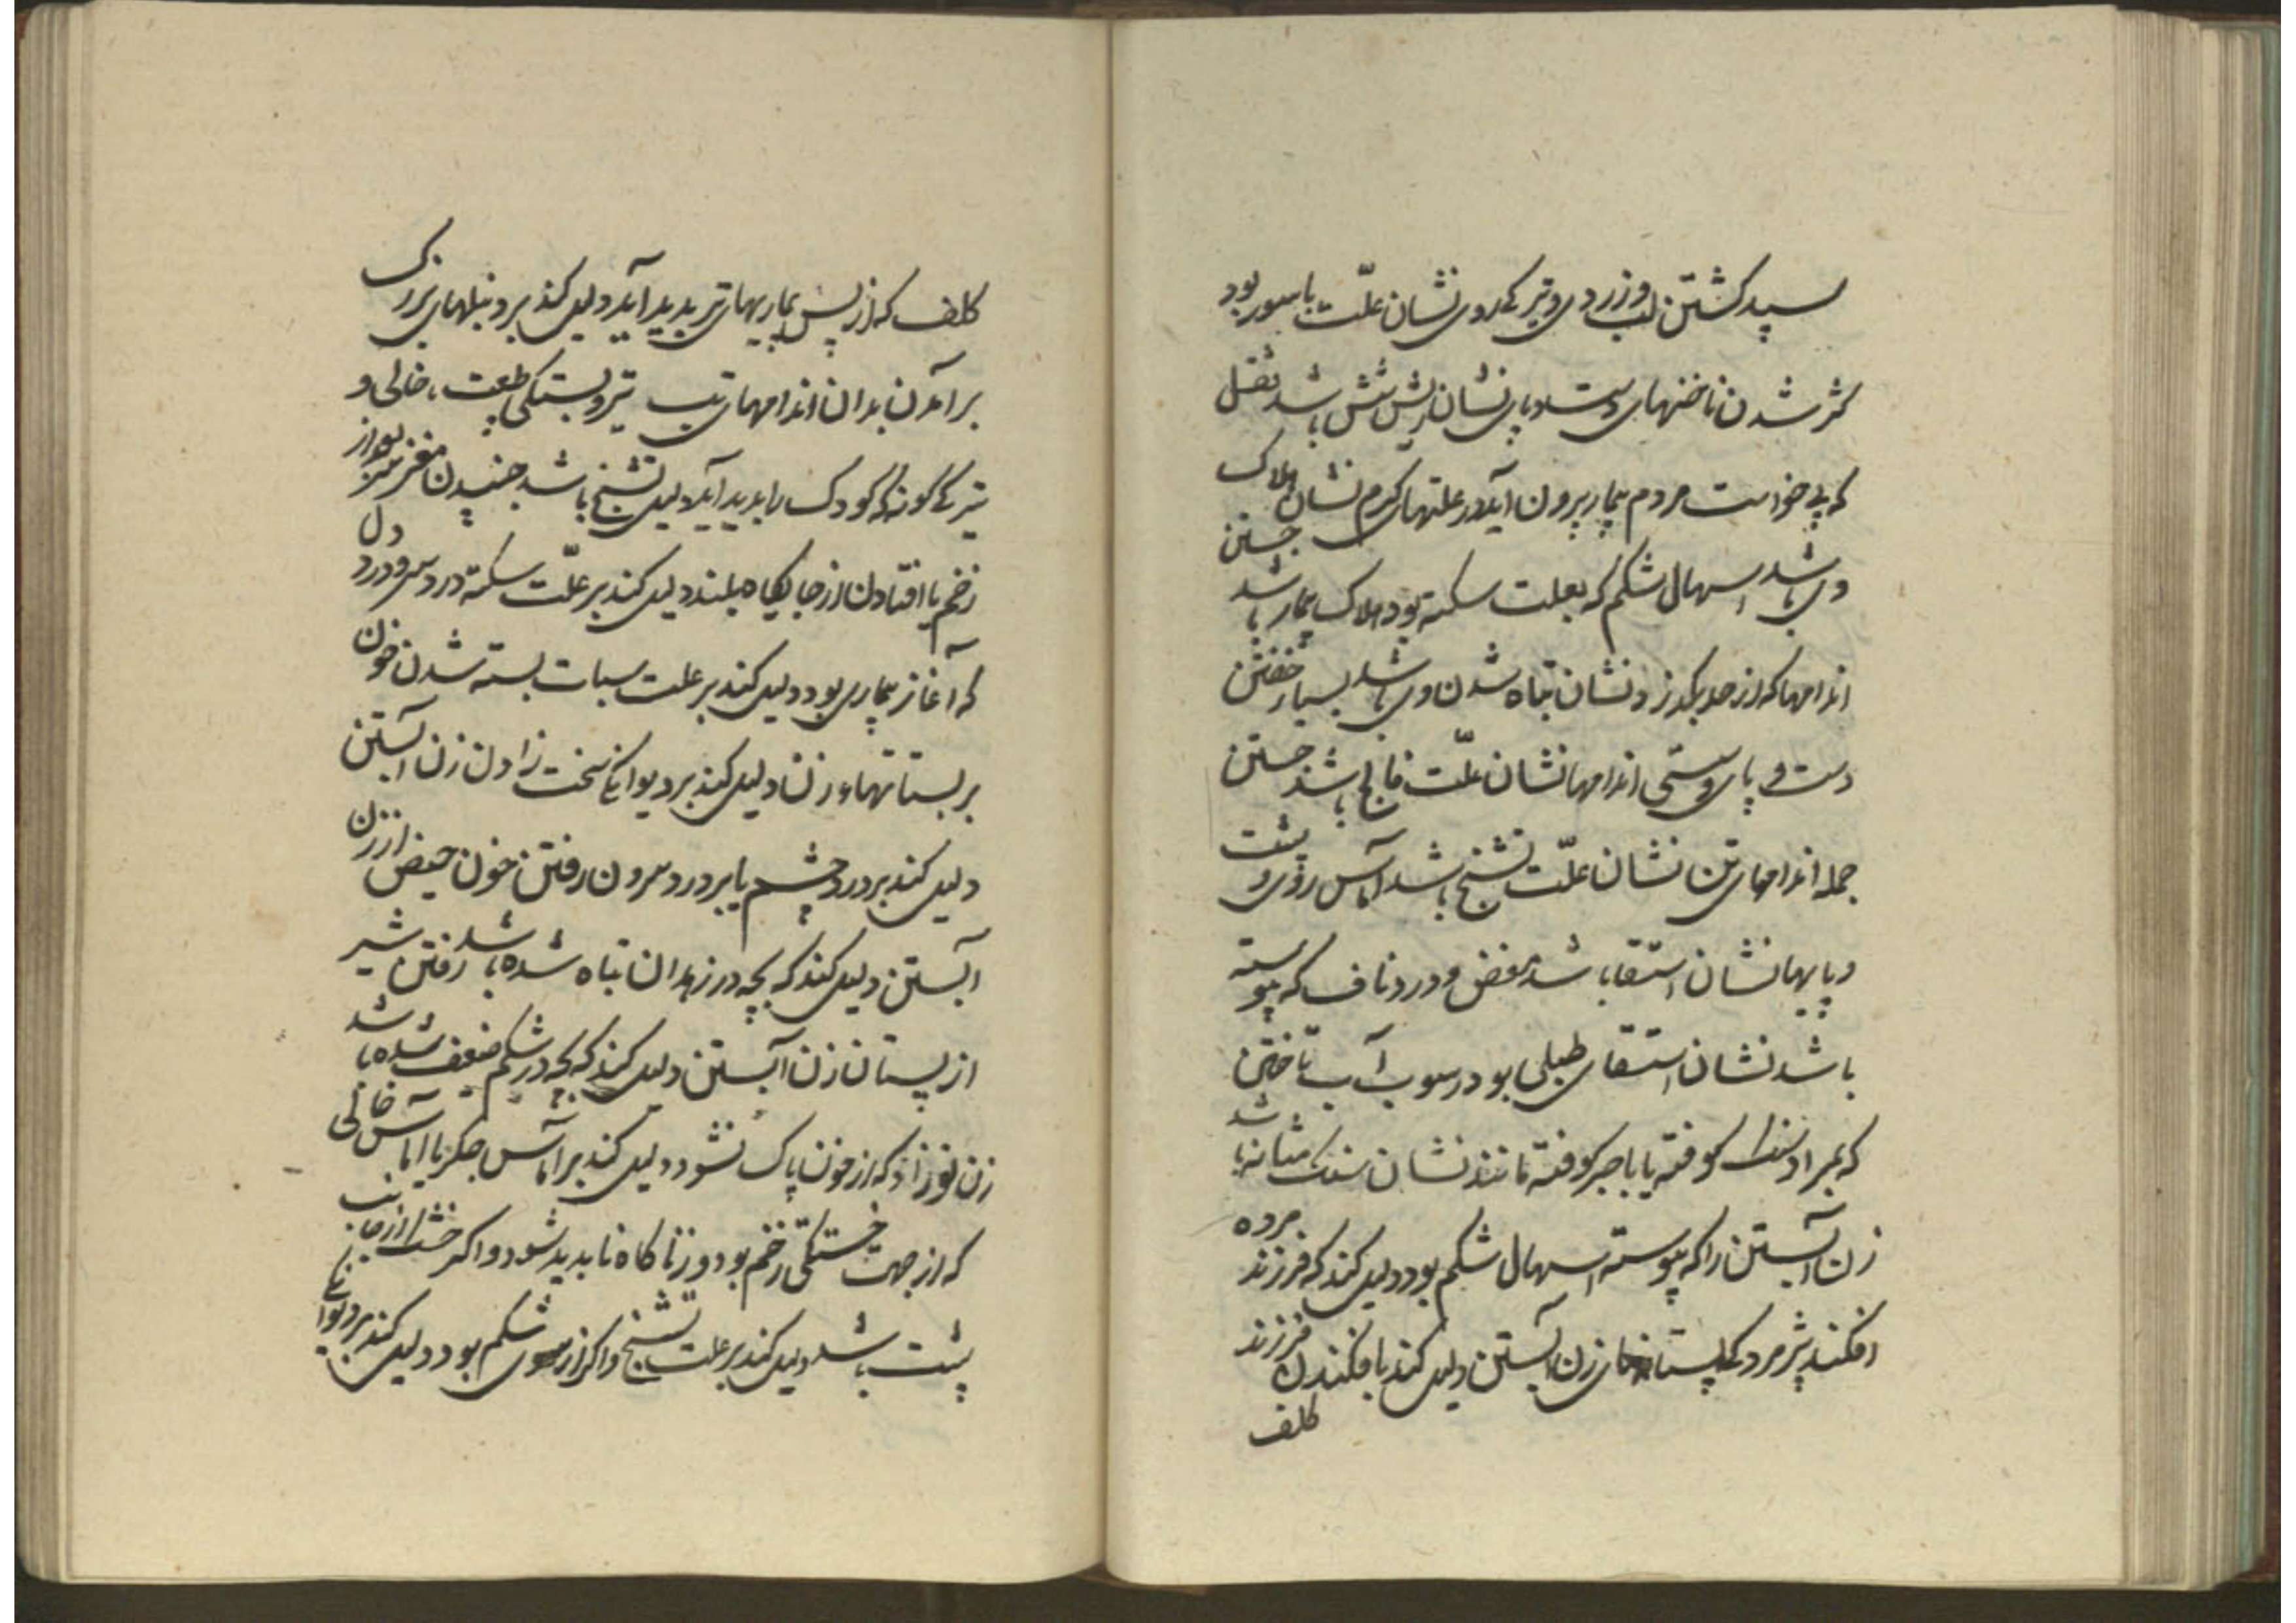 سپید کشتن لب و زردی و تیرکی روی نشان علّت باسور بود
کژ شدن ناخنهای دست و پای نشان ریش شش باشد ثفل
که بی خواست مردم بیمار بیرون آید در علتهای کرم نشان هلاک
وی باشد اسهال شکم که بعلت سکته بود هلاک بیمار باشد جستن
اندامها که از حد بکذرد نشان تباه شدن وی باشد بسیار خفتن
دست و پای و سستی اندامها نشان علّت فالج باشد جستن
جمله اندامهای تن نشان علّت تشنج باشد آماس روی و پشت
و پایها نشان استسقا باشد مغص و درد ناف که پیوسته
باشد نشان استسقای طبلی بود رسوب آب تاختن
که بمراد سنک کوفته یا باجر کوفته مانند نشان سنک مثانه باشد
زن آبستن را که پیوسته اسهال شکم بود دلیل کند که فرزند مرده
افکند پژمردکی پستانهای زن آبستن دلیل کند بافکندن فرزند
کلف
کلف که از پس بیماریهای تیز پدید آید دلیل کند بر دنبلهای بزرک
برآمدن بدان اندامهای تب تیز و بستکی طبیعت خالی و
تیرکی کونه که کودک را پدید آید دلیل تشنج باشد جنبیدن مغز سر بود از
زخم یا افتادن از جایکاه بلند دلیل کند بر علّت سکته درد سر و درد دل
که آغاز بیماری بود دلیل کند بر علت سبات بسته شدن خون
بر پستانهاء زنان دلیل کند بر دیوانکی سخت زادن زن آبستن
دلیل کند بر درد چشم یا بر درد سرون رفتن خون حیض از زن
آبستن دلیل کند که بچه در زهدان تباه شده باشد رفتن شیر
از پستان زن آبستن دلیل کند که بچه در شکم ضعیف شده باشد
زن نوزاد که از خون پاک نشود دلیل کند بر آماس جکر یا آماس خالی
که از جهت خستکی زخم بود و زناکاه ناپدید شود و اکر خشک از جانب
پشت باشد دلیل کند بر علت تشنج و اکر از سوی شکم بود دلیل کند بر دیوانکی